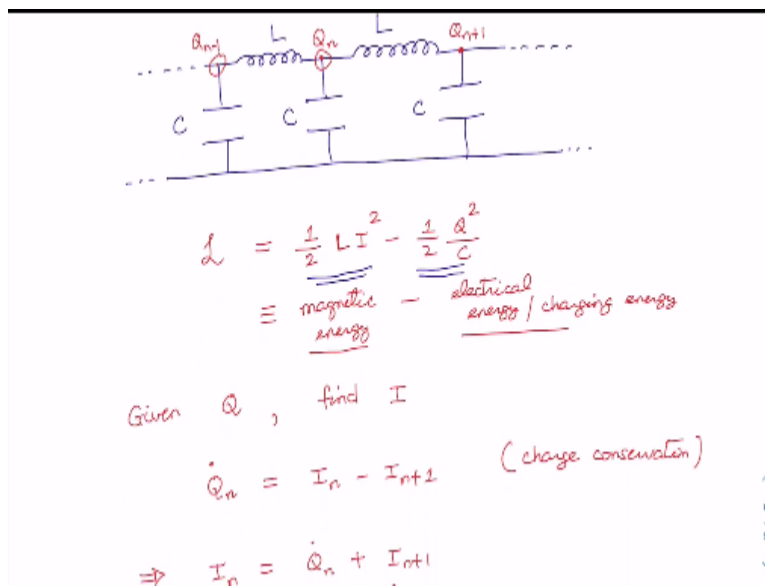 L L
Q_{n-1} Q_n Q_{n+1}
C C C
ℒ = 1/2 L I² - 1/2 Q²/C
≡ magnetic energy - electrical energy / charging energy
Given Q , find I
Q̇_n = I_n - I_{n+1} (charge conservation)
⇒ I_n = Q̇_n + I_{n+1}